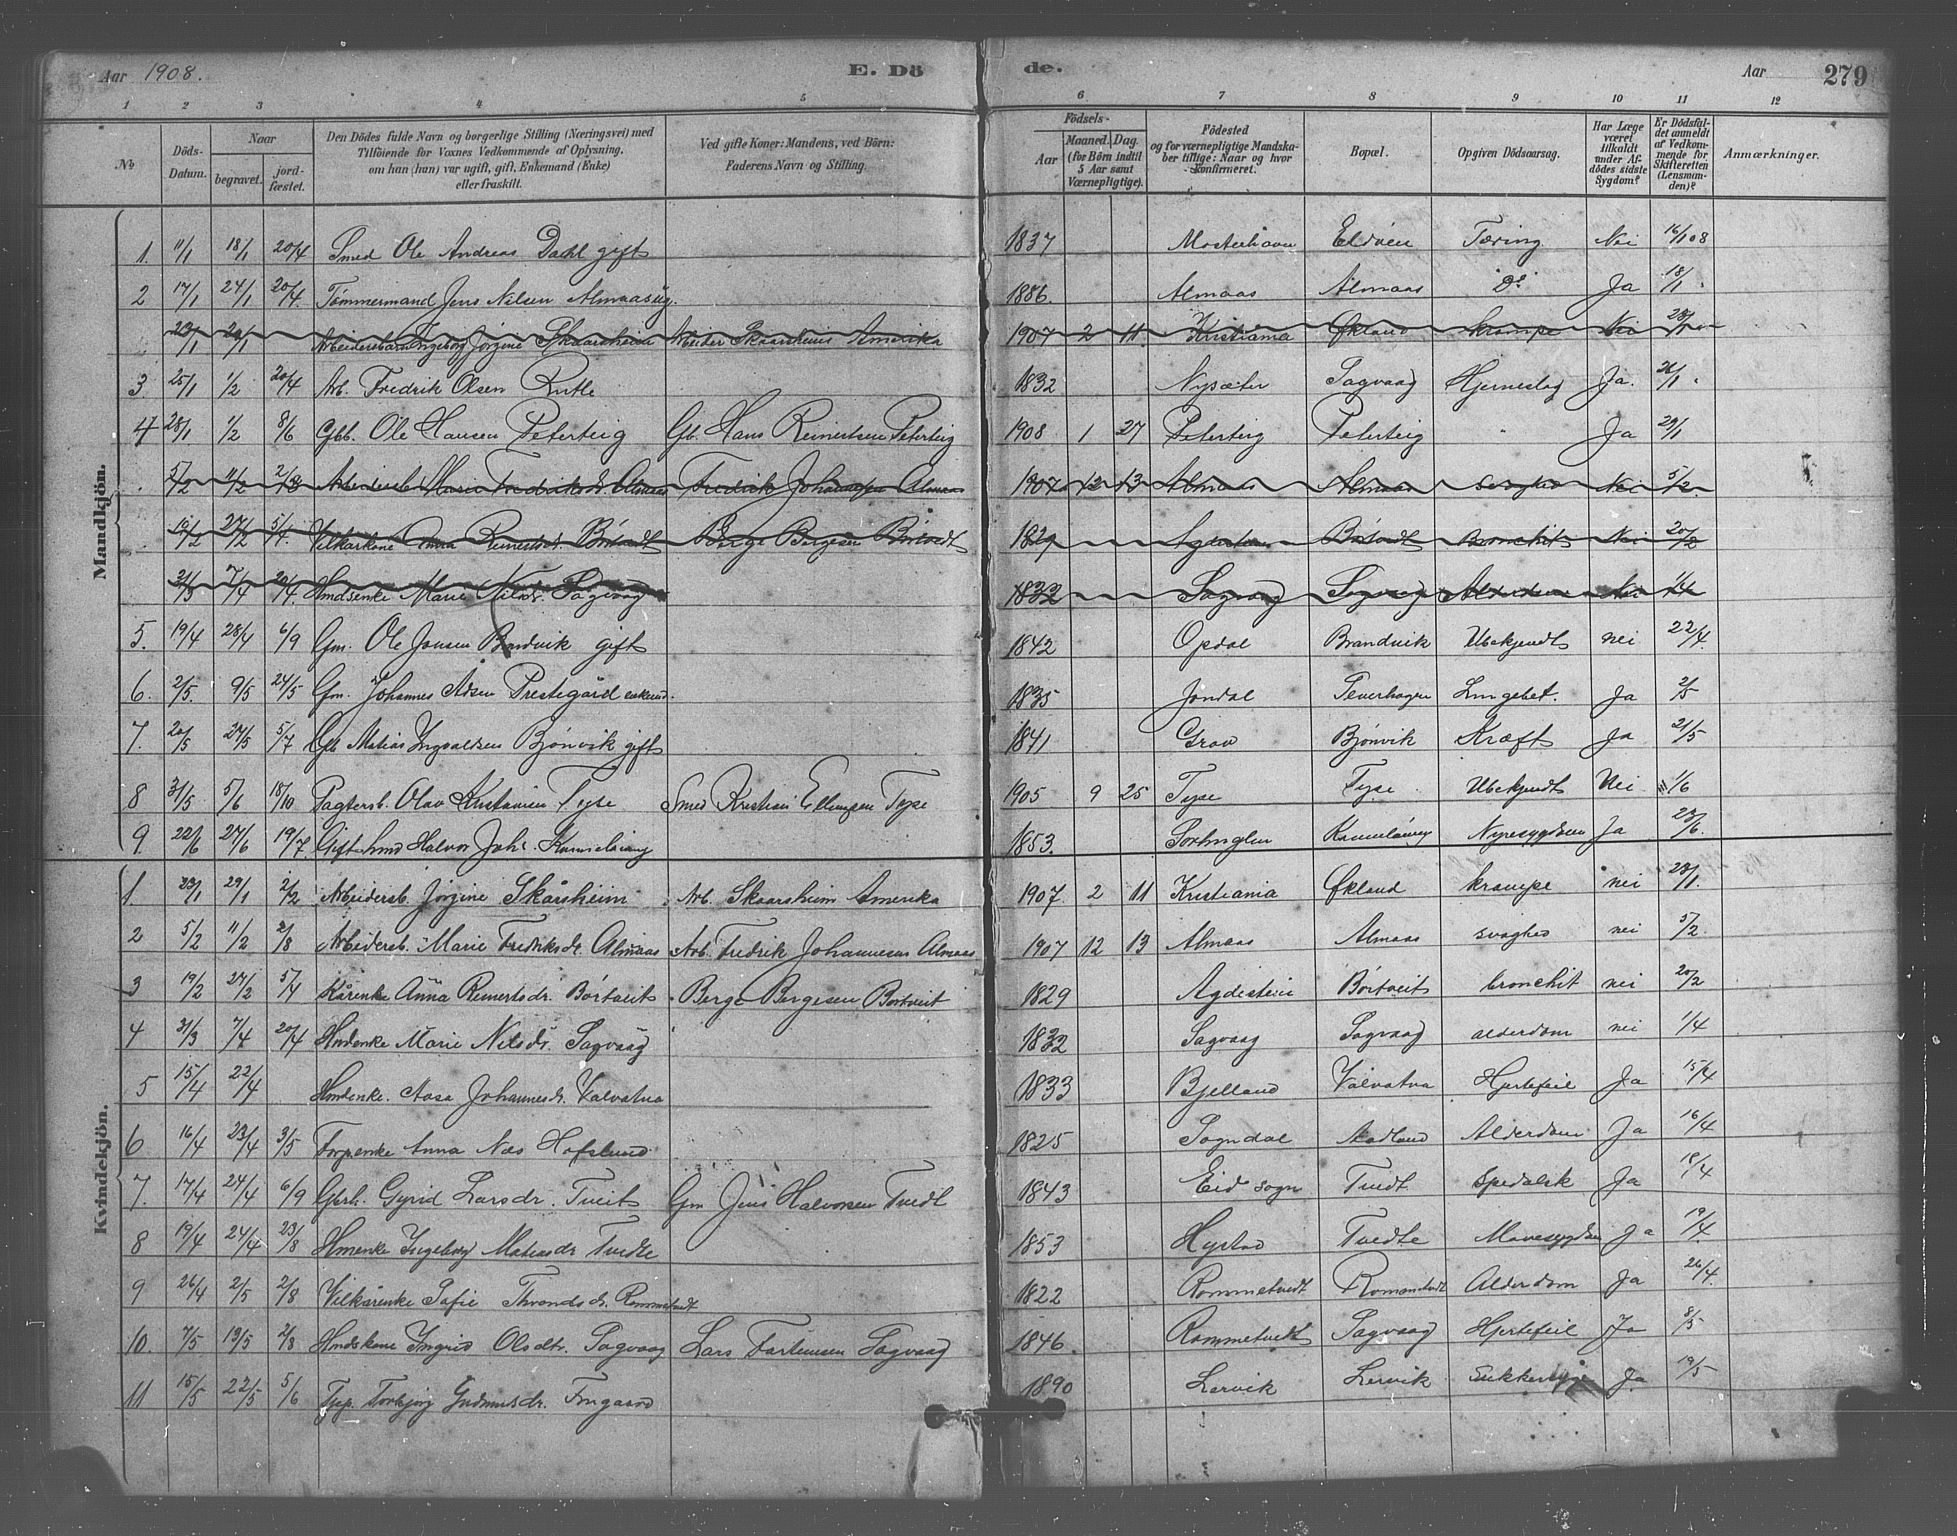 Aar 1908. E. Dö de. Aar 279
1 2 3 4 5 6 7 8 9 10 11 12
No Döds-Datum. Naar begravet. jord-fæstet. Den Dödes fulde Navn og borgerlige Stilling (Næringsvei) med Tilföiende for Voxnes Vedkommende af Oplysning, om han (hun) var ugift, gift, Enkemand (Enke) eller fraskilt. Ved gifte Koner: Mandens, ved Börn: Faderens Navn og Stilling. Födsels- Aar Maaned. Dag. (for Börn indtil 5 Aar samt Værnepligtige). Födested og for værnepligtige Mandskaber tillige: Naar og hvor konfirmeret. Bopæl. Opgiven Dödsaarsag. Har Læge været tilkaldt under Afdödes sidste Sygdom? Er Dödsfaldet anmeldt af Vedkommende for Skifteretten (Lensmanden)? Anmærkninger.
Mandkjön.
1. 11/1 18/1 20/4 Smed Ole Andreas Dahl gift 1837 Mosterhavn Eldøen Tæring Nei 16/1 08
2 17/1 24/1 20/4. Tømmermand Jens Nilsen Almaas ug. 1886. Almaas Almaas Do Ja 18/1
23/1 29/1 Arbeidersbarn Ingeborg Jørgine Skaarsheim Arbeider Skaarsheim Amerika 1907 2 11. Kristiania Økland krampe Nei 28/1
3. 25/1 1/2 20/4 Arb. Fredrik Olsen Rutle 1832 Nysæter Sagvaag Hjerneslag Ja. 26/1
4 28/1 1/2 8/6 Gbb. Ole Hansen Peterteig Gb. Hans Reinertsen Peterteig 1908 1 27 Peterteig Peterteig " Ja 29/1
5/2 11/2 2/8 Arbeidersb. Marie Fredriksdr. Almaas Fredrik Johannesen Almaas 1907 12 13 Almaas Almaas svaghed Nei 5/2.
19/2 27/2 5/4. Vilkårkone Anna Reinertsdr. Børtvedt Berge Bergesen Børtvedt 1829 Agdestein Børtvedt Bronchit Nei 20/2
31/3 7/4 20/4. Hmdsenke Marie Nilsdr. Sagvaag 1832 Sagvaag Sagvaag Alderdom Nei 1/4
5. 19/4 28/4 6/9 Gm. Ole Jonsen Brandvik gift 1842 Opdal Brandvik Ubekjendt nei 22/4.
6. 2/5. 9/5 24/5 Gm. Johannes Adsen Prestegård enkemd. 1835 Jondal Teverhagen Lungebet. Ja 2/5
7. 20/5 27/5 5/7 Gb Matias Ingvaldsen Bjönvik gift 1841 Grov Bjönvik Kræft Ja 21/5
8 31/5 5/6 18/10 Pagtersb. Olav Kristiansen Tyse Smed Kristian Ellingsen Tyse 1905 9 25 Tyse Tyse Ubekjendt Nei 1/6
9. 22/6 27/6 19/7. Gift hmd Halvor Johs. 1853. Nyresygdom Ja 23/6.
Kvindekjön.
1 23/1 29/1 2/2 Arbeidersb. Jörgine Skårsheim Arb. Skaarsheim Amerika 1907. 2 11 Kristiania Økland krampe nei 28/1.
2 5/2 11/2 2/8 Arbeidersb. Marie Fredriksdr. Almaas Arb. Fredrik Johannesen Almaas 1907 12 13 Almaas Almaas svaghed nei 5/2.
3 19/2 27/2 5/4 Kårenke Anna Reinertsdr. Börtveit Berge Bergesen Bortveit 1829 Agdestein Börtveit bronchit nei 20/2
4 31/3 7/4 20/4 Hmdenke Marie Nilsdr. Sagvaag 1832 Sagvaag Sagvaag alderdom nei 1/4
5 15/4 22/4 Hmdenke. Aasa Johannesdr. Valvatna 1833 Bjelland Valvatna Hjertefeil Ja 15/4
6 16/4 23/4 3/5 Forp.enke Anna Næs Hofslund 1825 Sogndal Alderdom Ja 16/4
7. 17/4 24/4 6/9 Gbrk. Gyrid Larsdr. Tveit Gm Jens Halvorsen Tvedt 1843 Eid sogn Tvedt Spedalsk Ja 18/4
8 19/4 24/4 23/8 Hmenke Ingeborg Matiasdr Tvedte 1853 Hystad Tvedte Mavesygdom Ja 19/4
9 26/4 2/5 2/8 Vilkårenke Sofie Throndsdr. Rommetvedt 1822 Rommetvedt Rommetvedt Alderdom Ja 26/4.
10 7/5 13/5 2/8 Hmdskone Ingrid Olsdtr. Sagvaag Lars Sagvaag 1846. Rommetvedt Sagvaag Hjertefeil Ja 8/5
11 15/5 22/5 5/6 Torbjørg Gudmundsdr. 1890 Lervik Lervik Ja 19/5